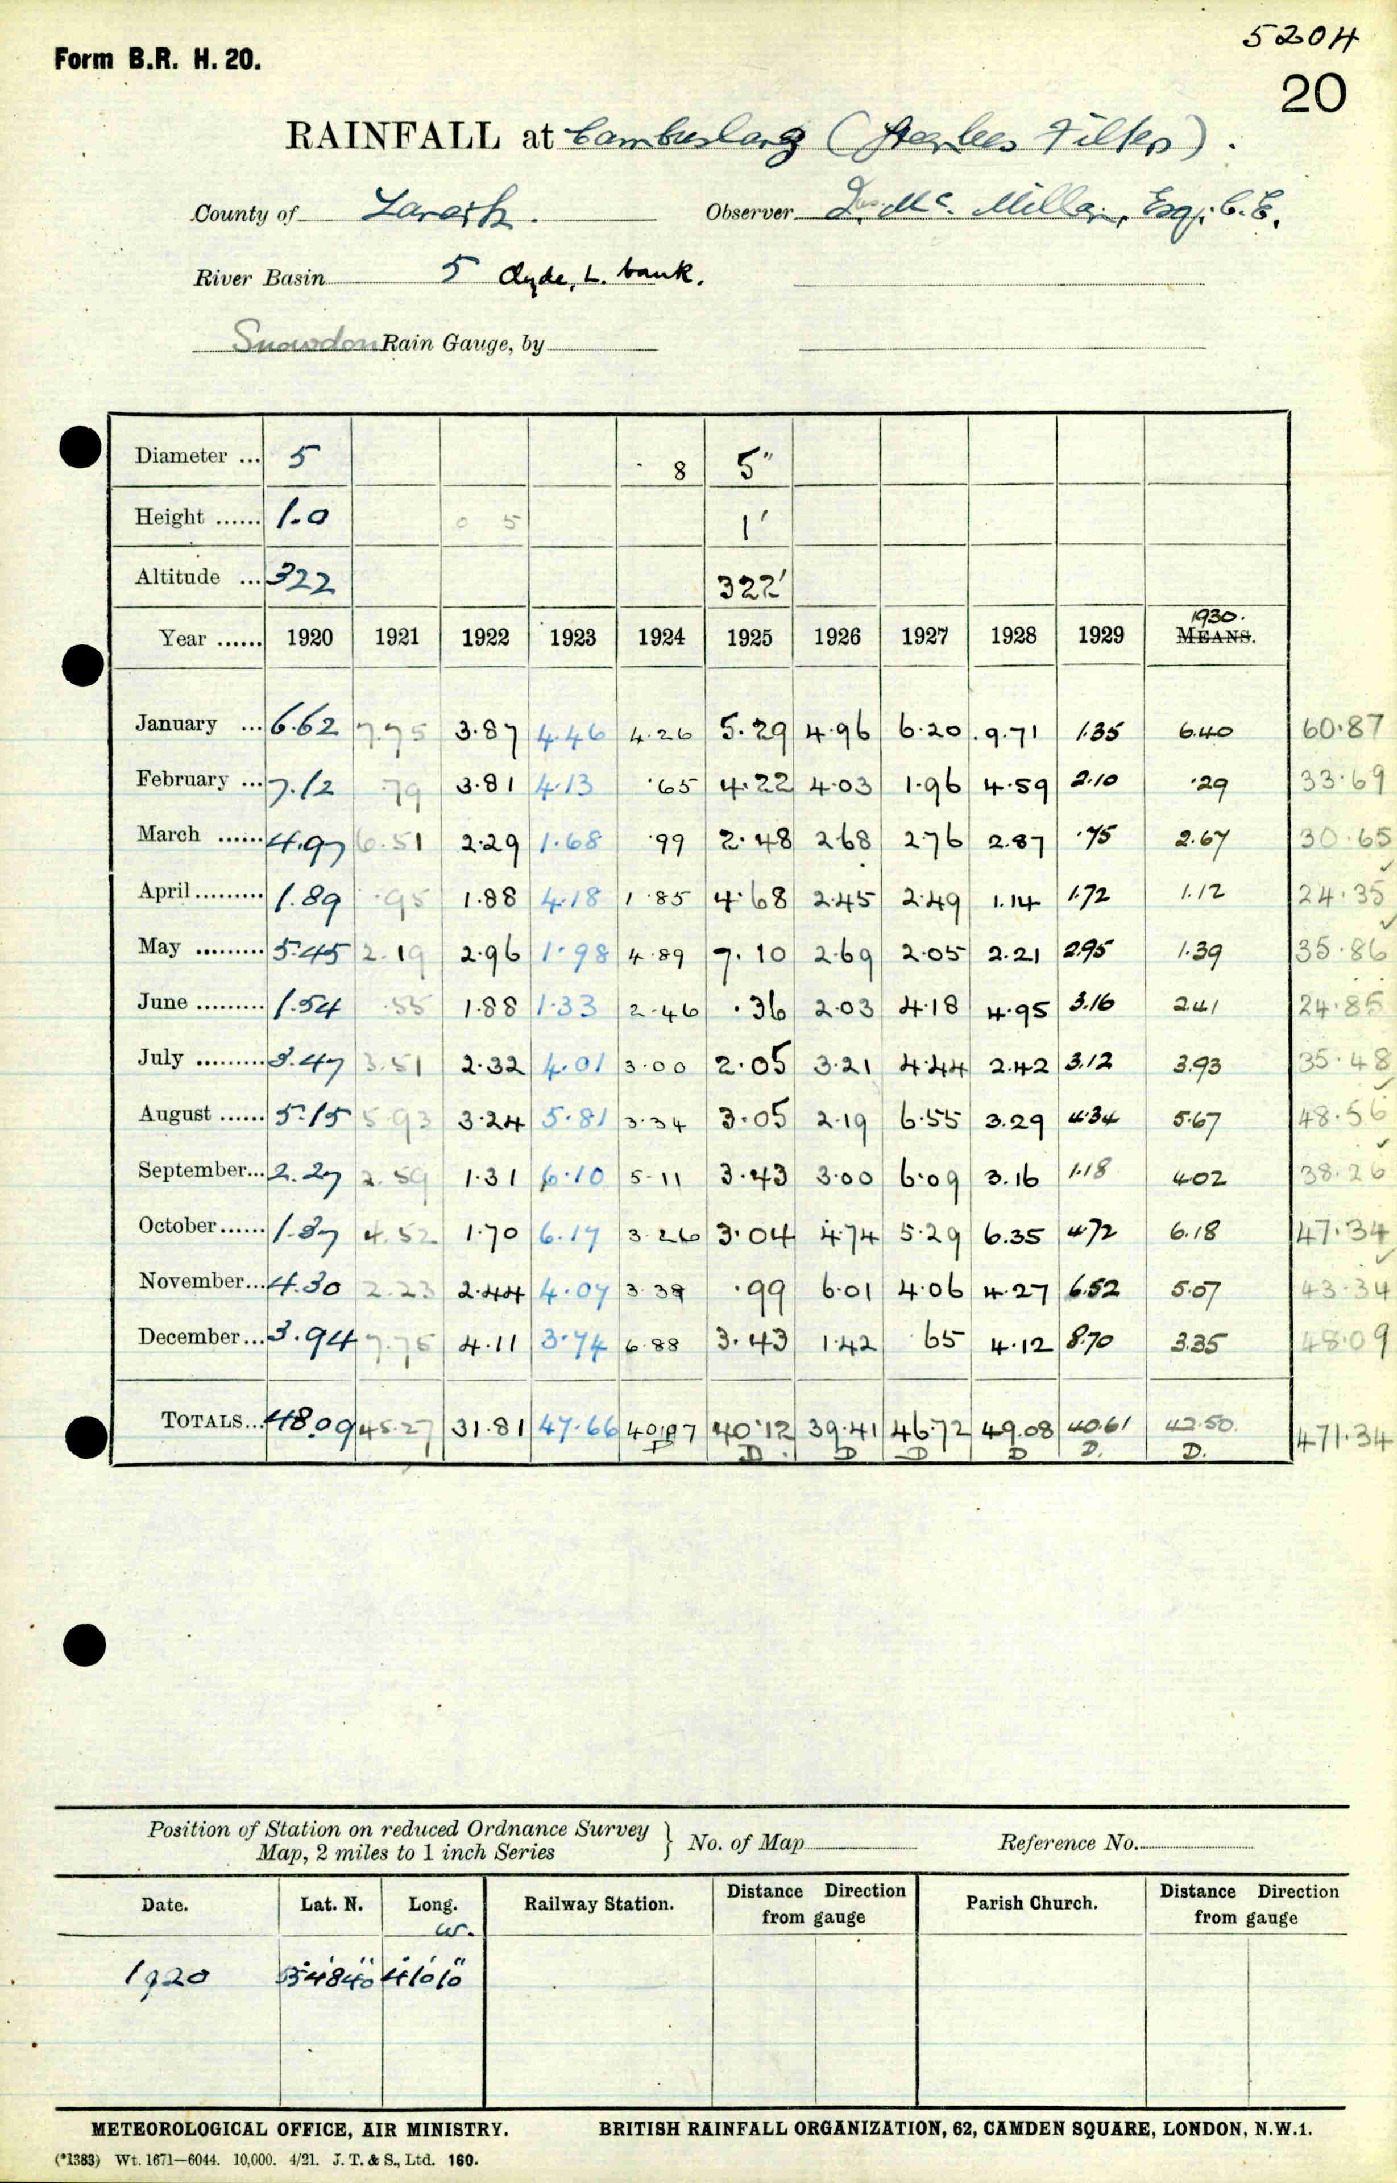 5204
Form B.R. H. 20.
20
RAINFALL at Cambuslang ( Filters).
County of Lanark. Observer Mc. Millan, Esq., C.E.
River Basin 5 Clyde, L. bank.
Snowdon Rain Gauge, by
Diameter ... 5 8 5"
Height ...... 1.0 0 5 1'
Altitude ... 322 322'
1930.
Year ...... 1920 1921 1922 1923 1924 1925 1926 1927 1928 1929 MEANS.
January ... 6.62 7.75 3.87 4.46 4.26 5.29 4.96 6.20 9.71 1.35 6.40 60.87
February ... 7.12 .79 3.81 4.13 .65 4.22 4.03 1.96 4.59 2.10 .29 33.69
March ...... 4.97 6.51 2.29 1.68 .99 2.48 2.68 2.76 2.87 .75 2.67 30.65
April ......... 1.89 .95 1.88 4.18 1.85 4.68 2.45 2.49 1.14 1.72 1.12 24.35
May ......... 5.45 2.19 2.96 1.98 4.89 7.10 2.69 2.05 2.21 2.95 1.39 35.86
June ......... 1.54 .55 1.88 1.33 2.46 .36 2.03 4.18 4.95 3.16 2.41 24.85
July ......... 3.47 3.51 2.32 4.01 3.00 2.05 3.21 4.44 2.42 3.12 3.93 35.48
August ...... 5.15 5.93 3.24 5.81 3.34 3.05 2.19 6.55 3.29 4.34 5.67 48.56
September... 2.27 2.59 1.31 6.10 5.11 3.43 3.00 6.09 3.16 1.18 4.02 38.26
October...... 1.37 4.52 1.70 6.17 3.26 3.04 4.74 5.29 6.35 4.72 6.18 47.34
November... 4.30 2.23 2.44 4.07 3.38 .99 6.01 4.06 4.27 6.52 5.07 43.34
December... 3.94 7.75 4.11 3.74 6.88 3.43 1.42 .65 4.12 8.70 3.35 48.09
TOTALS... 48.09 45.27 31.81 47.66 40.07 40.12 39.41 46.72 49.08 40.61 42.50 471.34
D D D D D D. D.
Position of Station on reduced Ordnance Survey
Map, 2 miles to 1 inch Series } No. of Map Reference No.
Date. Lat. N. Long. Railway Station. Distance Direction from gauge Parish Church. Distance Direction from gauge
W.
1920 55°48'40" 4°10'10"
METEOROLOGICAL OFFICE, AIR MINISTRY. BRITISH RAINFALL ORGANIZATION, 62, CAMDEN SQUARE, LONDON, N.W.1.
(*1383) Wt. 1671—6044. 10,000. 4/21. J. T. & S., Ltd. 160.